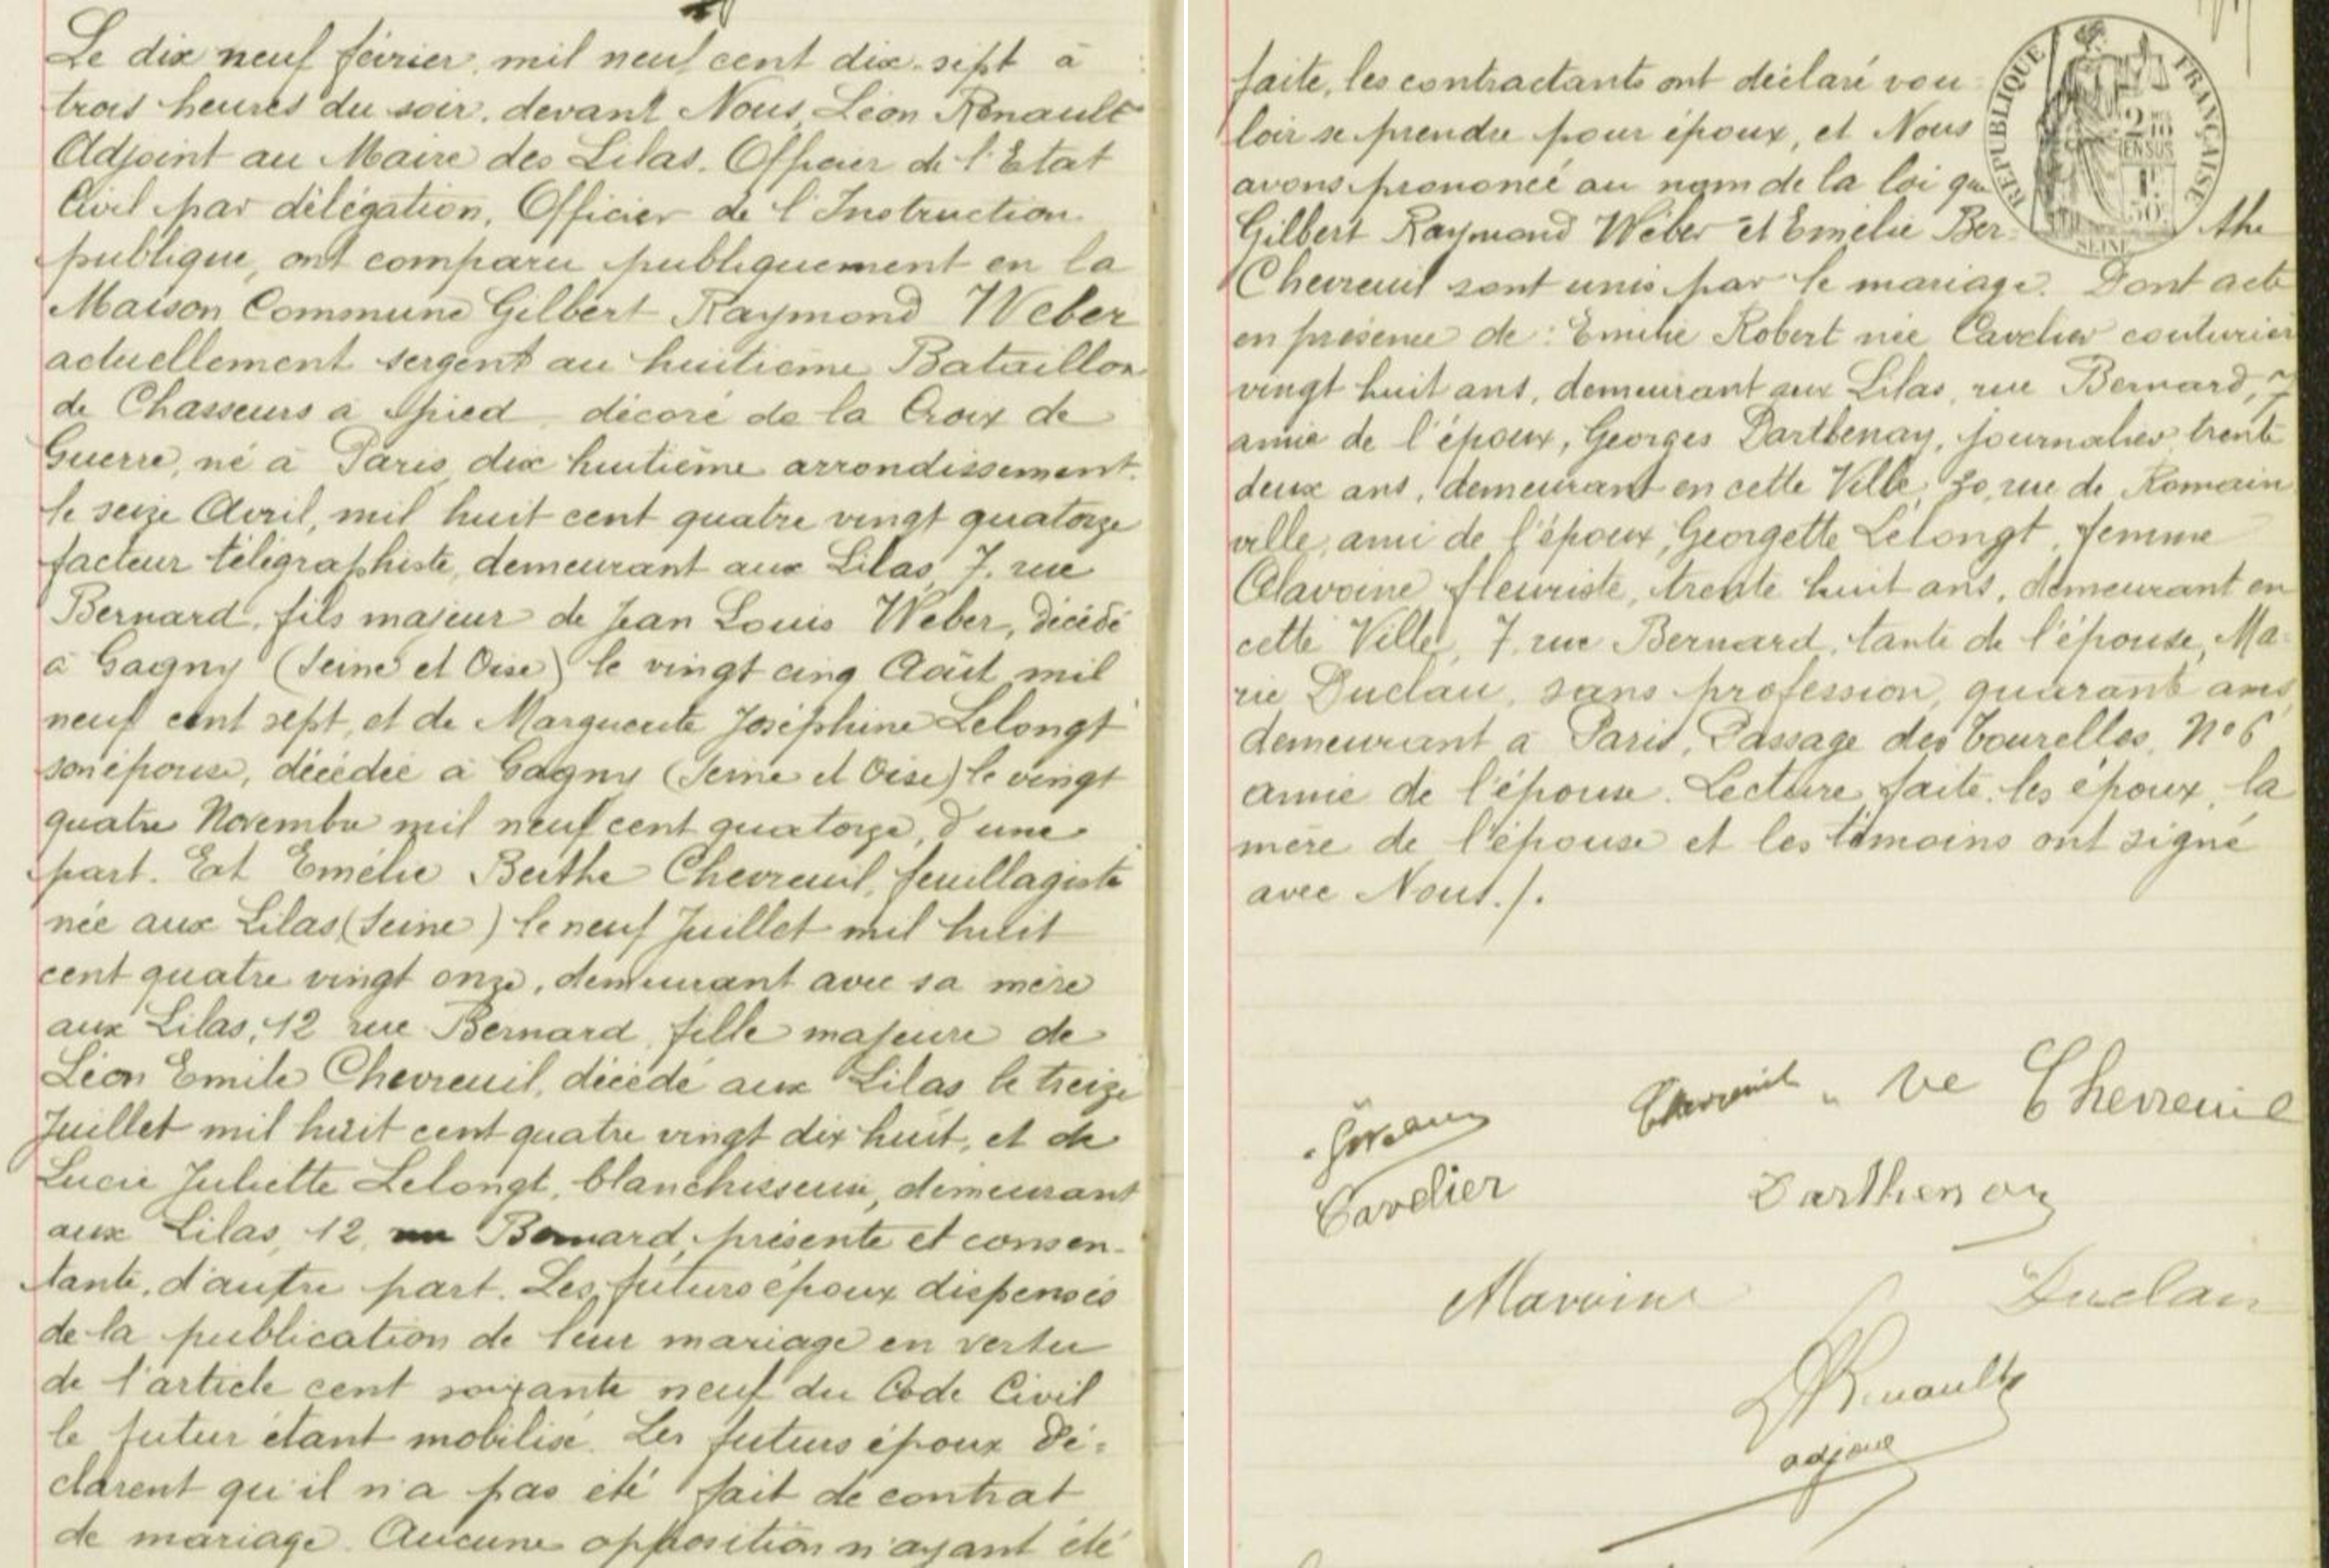 Le dix neuf février mil neuf cent dix-sept à
trois heures du soir, devant Nous, Léon Renault
Adjoint au Maire des Lilas, Officier de l'Etat
Civil par délégation, Officier de l'Instruction
publique, ont comparu publiquement en la
Maison Commune Gilbert Raymond Weber
actuellement sergent au huitième Bataillon
de Chasseurs à pied, décoré de la Croix de
Guerre, né à Paris, dix huitième arrondissement
le seize Avril, mil huit cent quatre vingt quatorze
facteur télégraphiste, demeurant aux Lilas, 7, rue
Bernard, fils majeur de Jean Louis Weber, décédé
à Gagny (Seine et Oise) le vingt cinq Août mil
neuf cent sept, et de Marguerite Joséphine Lelongt
son épouse, décédée à Gagny (Seine et Oise) le vingt
quatre Novembre mil neuf cent quatorze, d'une
part. Et Emélie Berthe Chevreuil, feuillagiste
née aux Lilas (Seine) le neuf Juillet mil huit
cent quatre vingt onze, demeurant avec sa mère
aux Lilas, 12 rue Bernard, fille majeure de
Léon Emile Chevreuil, décédé aux Lilas le treize
Juillet mil huit cent quatre vingt dix huit, et de
Lucie Juliette Lelongt, blanchisseuse, demeurant
aux Lilas, 12, rue Bernard, présente et consen-
tante, d'autre part. Les futurs époux dispensés
de la publication de leur mariage en vertu
de l'article cent soixante neuf du Code Civil
le futur étant mobilisé. Les futurs époux dé-
clarent qu'il n'a pas été fait de contrat
de mariage. Aucune opposition n'ayant été
faite, les contractants ont déclaré vou-
loir se prendre pour époux, et Nous
avons prononcé au nom de la loi que
Gilbert Raymond Weber et Emélie Ber- the
Chevreuil sont unis par le mariage. Dont acte
en présence de : Emilie Robert née Cavelier couturière
vingt huit ans, demeurant aux Lilas, rue Bernard, 7
amie de l'époux, Georges Darthenay, journalier trente
deux ans, demeurant en cette Ville, 30, rue de Romain
ville, ami de l'époux, Georgette Lelongt, femme
Alavoine fleuriste, trente huit ans, demeurant en
cette Ville, 7, rue Bernard, tante de l'épouse, Ma-
rie Duclau, sans profession, quarante ans,
demeurant à Paris, Passage des Tourelles, N° 6
amie de l'épouse. Lecture faite, les époux, la
mère de l'épouse et les témoins ont signé
avec Nous./.
RÉPUBLIQUE FRANÇAISE
SEINE
Chevreuil Ve Chevreuil
Cavelier Darthenay
Alavoine Duclau
L Renault
adjoint